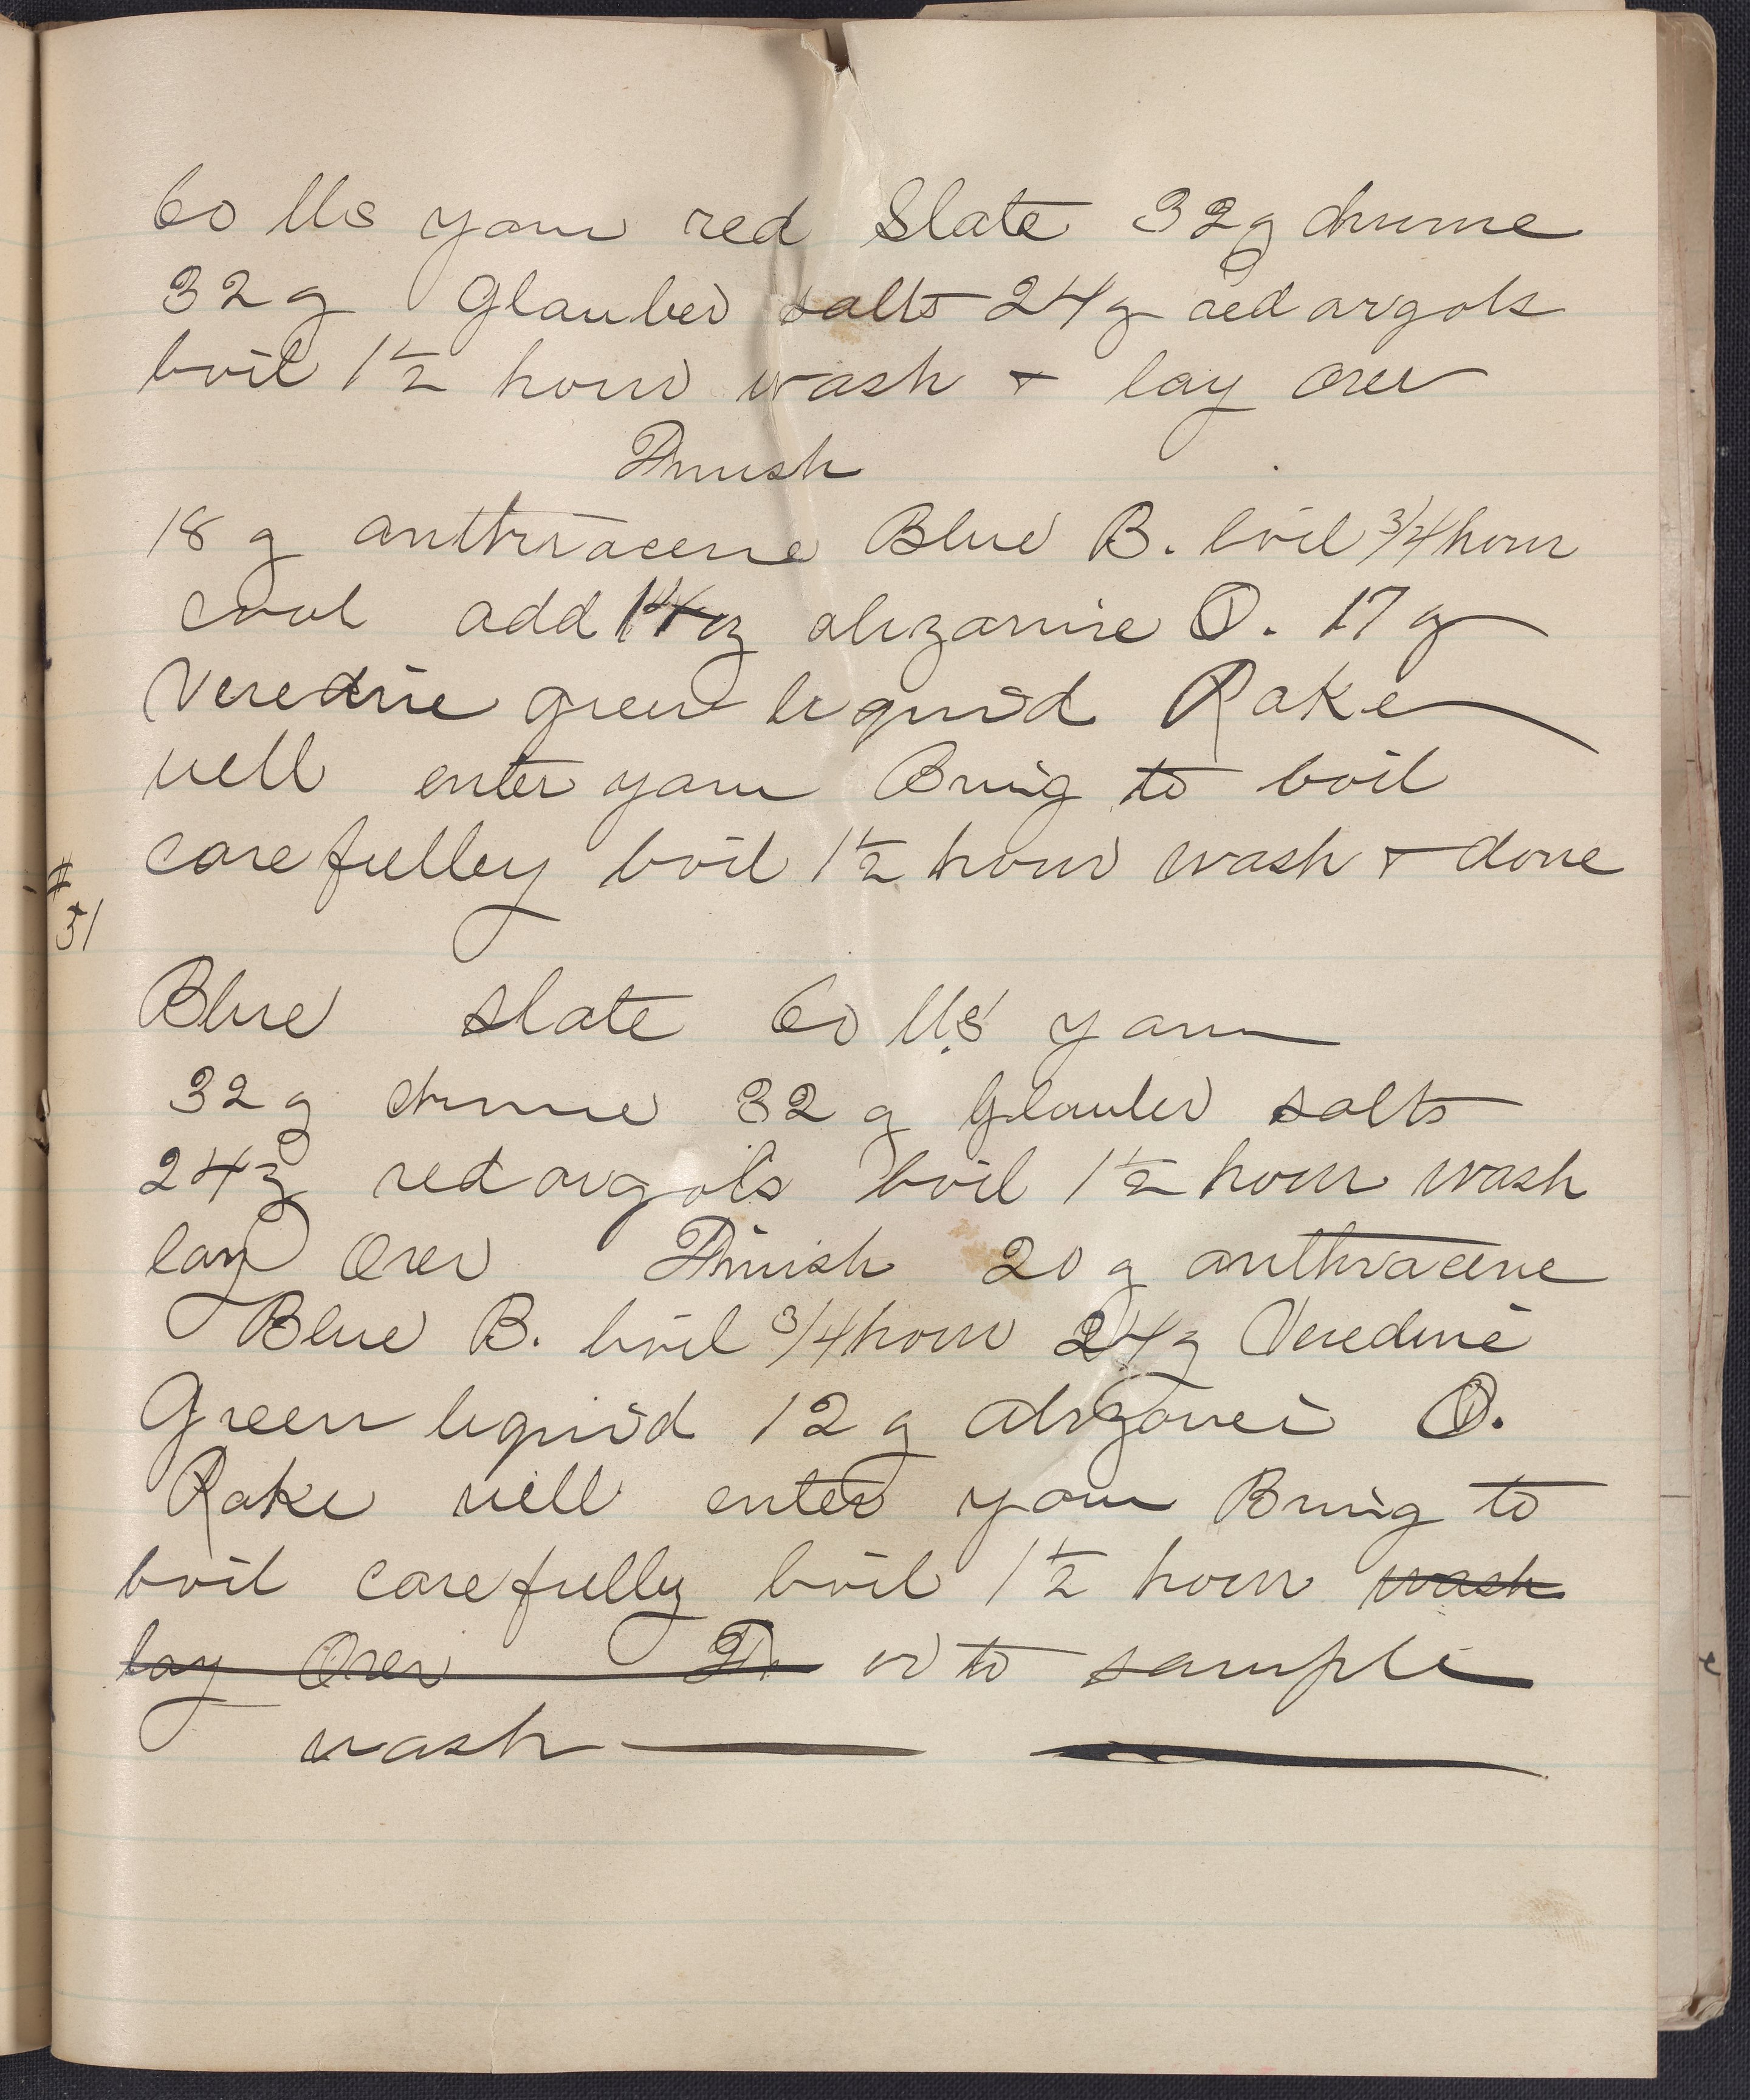 60 lbs yarn red Slate 32 g chrome
32 g Glauber salts 24 g red argols
boil 1 1/2 hour wash + lay over
Finish
18 g anthracene Blue B. boil 3/4 hour
cool add 14 oz alizarine O. 17 g
Veredine green liquid Rake
well enter yarn Bring to boil
carefulley boil 1 1/2 hour wash + done
# 51
Blue slate 60 lbs yarn
32 g chrome 32 g Glauber salts
24 g red argols boil 1 1/2 hour wash
lay over Finish 20 g anthracene
Blue B. boil 3/4 hour 24 g Veredine
Green liquid 12 g alizarine O.
Rake well enter yarn Bring to
boil carefully boil 1 1/2 hour wash
lay over Fi or to sample
wash